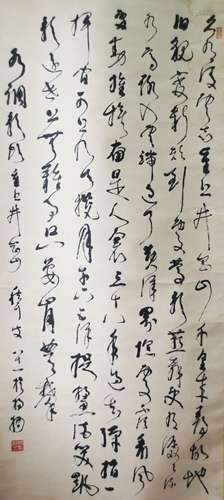 久有凌雲志重上井岡山千里來尋故地
舊貌變新顏到處鶯歌燕舞更有潺潺流
水高路入雲端過了黃洋界險處不須看風
雷動旌旗奮是人寰三十八年過去彈指一
揮間可上九天攬月可下五洋捉鱉談笑凱
歌還世上無難事只要肯登攀
水調歌頭 重上井岡山